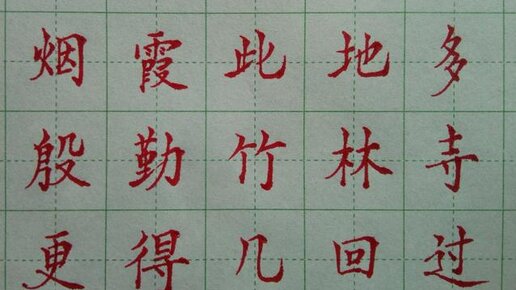 烟霞此地多
殷勤竹林寺
更得几回过